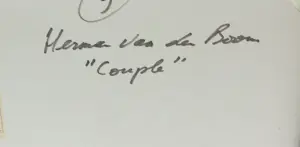 Herman van den Boom
"Couple"